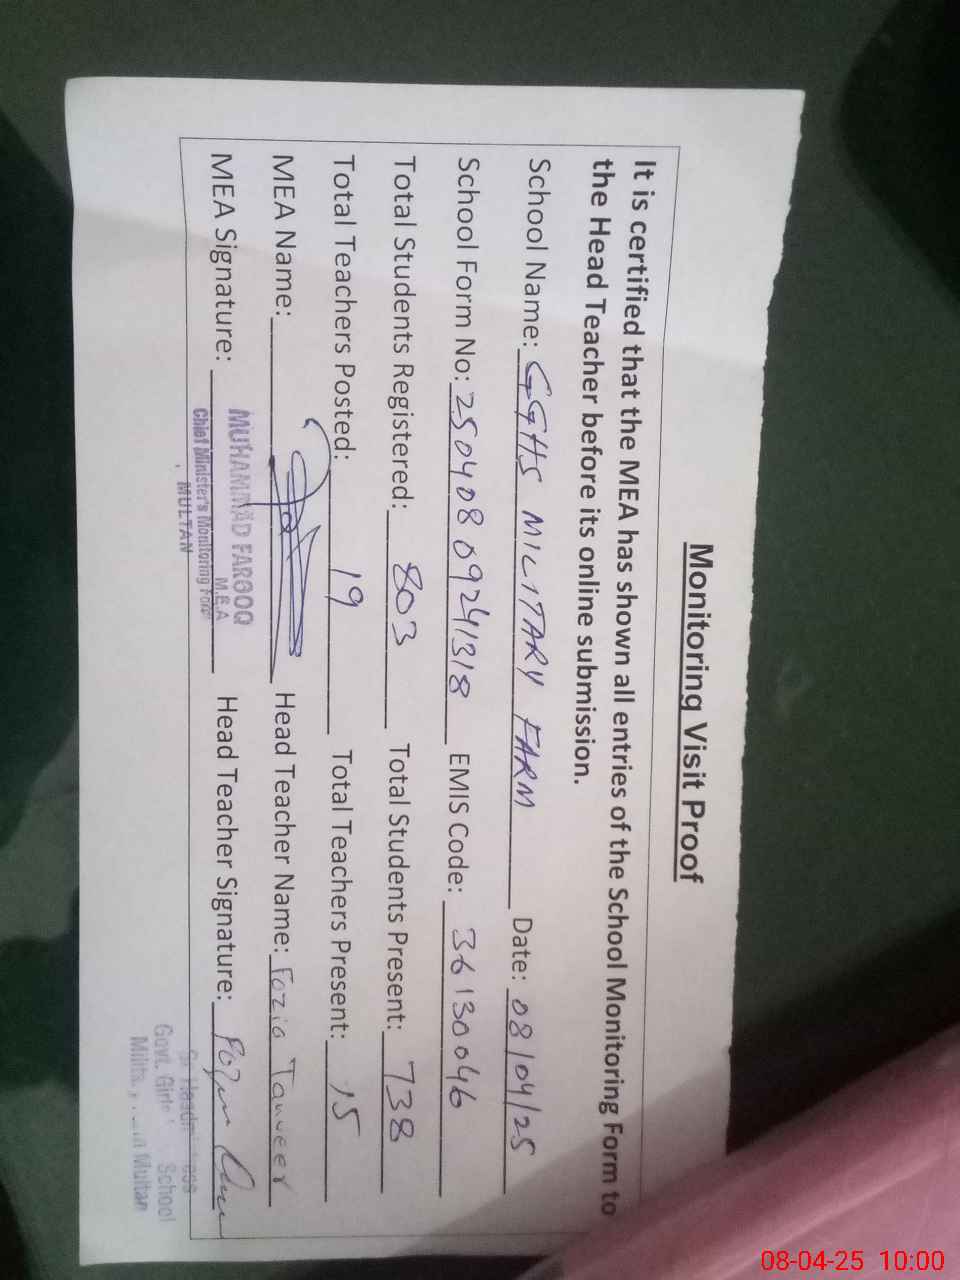 Monitoring Visit Proof
It is certified that the MEA has shown all entries of the School Monitoring Form to
the Head Teacher before its online submission.
School Name: GGHS MILITARY FARM Date: 08/04/25
School Form No: 250408 09241318 EMIS Code: 36130046
Total Students Registered: 803 Total Students Present: 738
Total Teachers Posted: 19 Total Teachers Present: 15
MEA Name: Head Teacher Name: Fozia Tanveer
MEA Signature: Head Teacher Signature:
MUHAMMAD FAROOQ
M.E.A
Chief Minister's Monitoring Force
MULTAN
Govt. Girls School
Multan
08-04-25 10:00